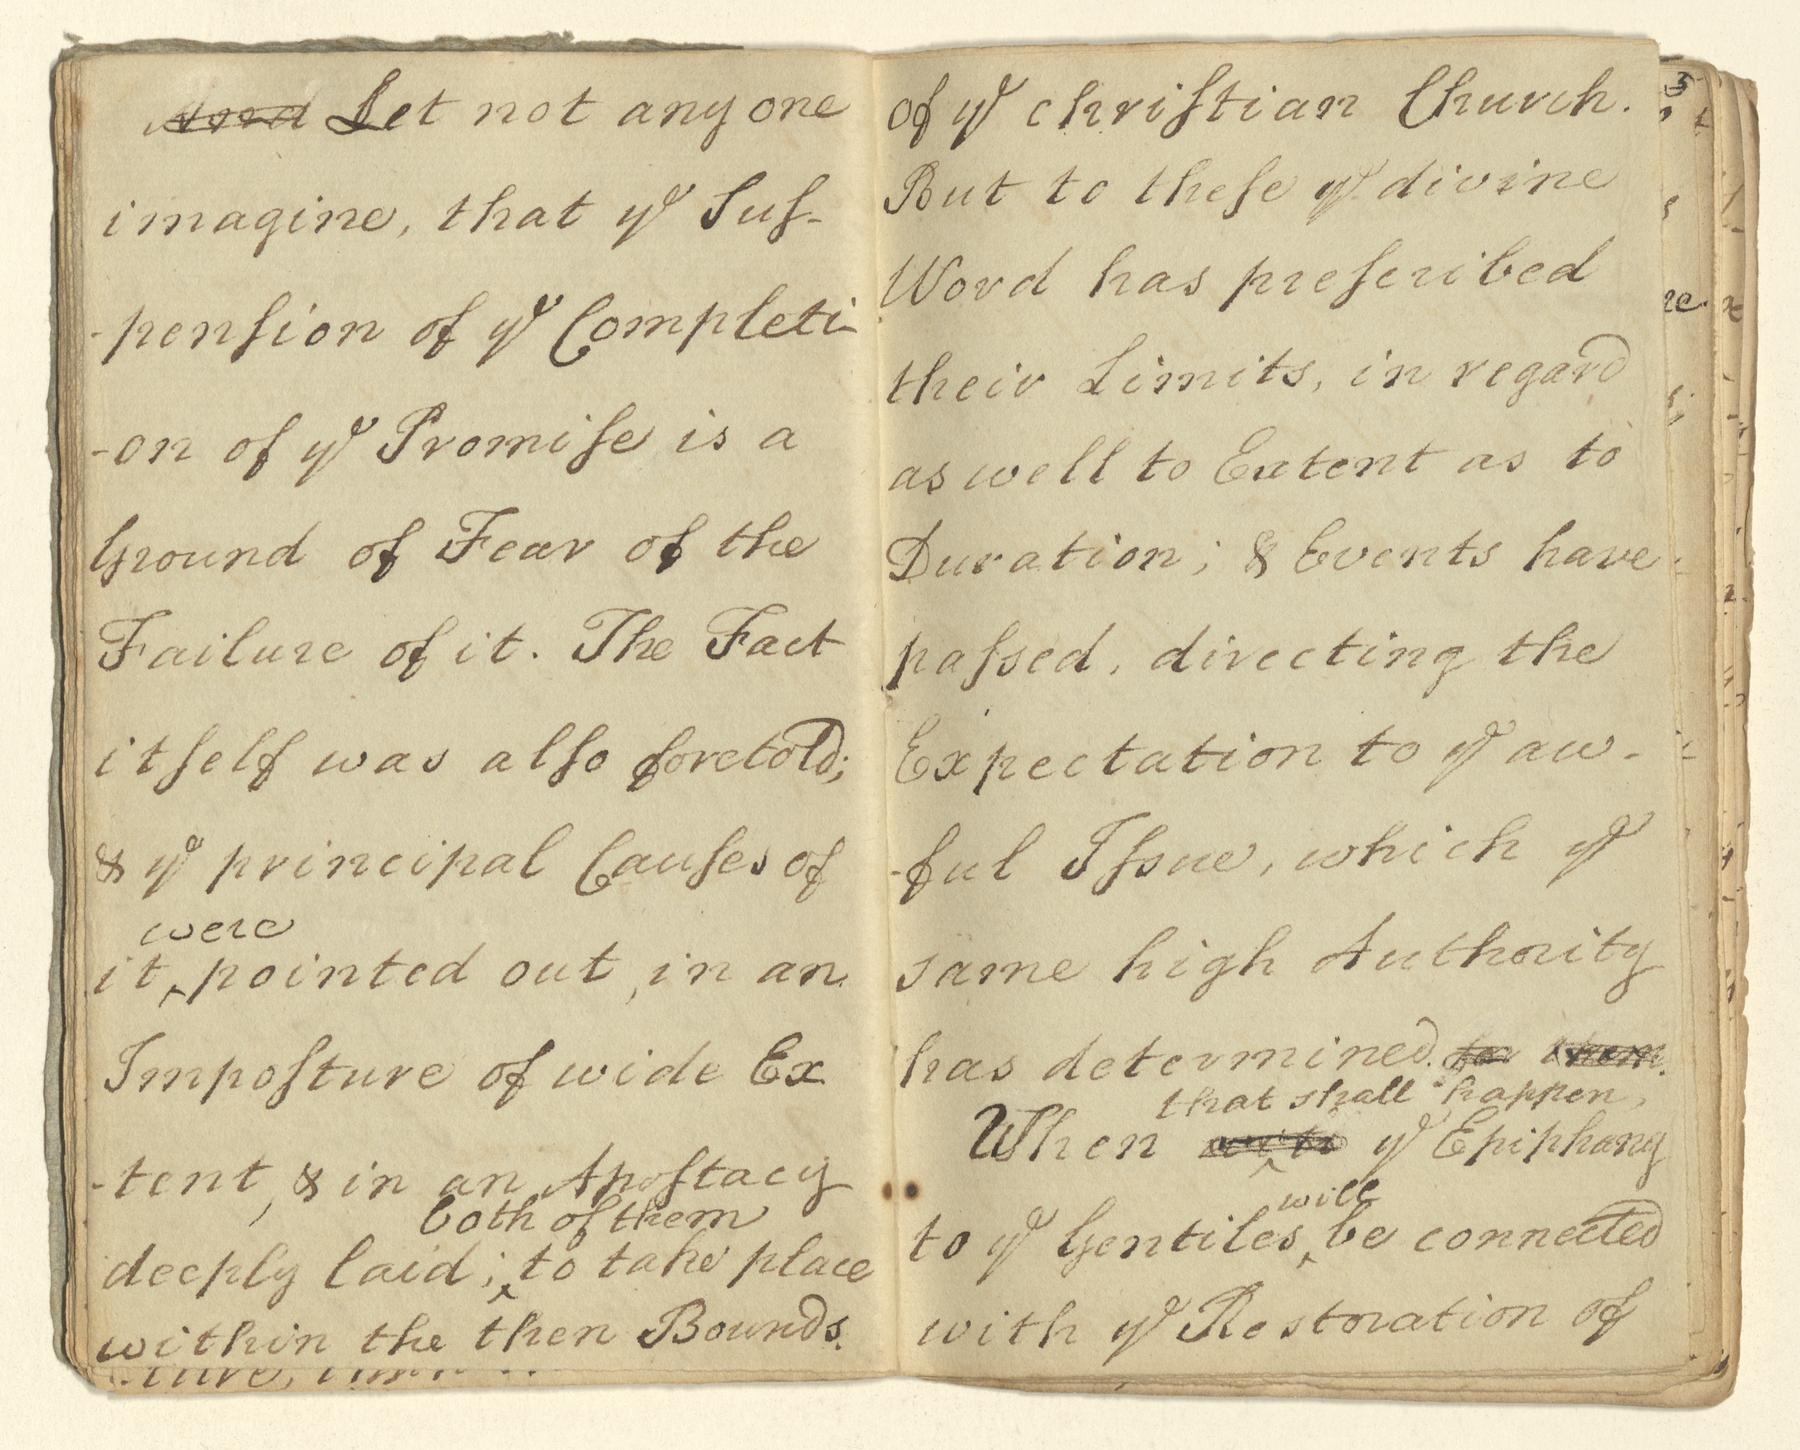 And Let not any one
imagine, that yᵉ Suſ-
-penſion of yᵉ Completi-
-on of yᵉ Promiſe is a
Ground of Fear of the
Failure of it. The Fact
itſelf was alſo foretold;
& yᵉ principal Cauſes of
were
it, pointed out, in an
Impoſture of wide Ex
-tent, & in an Apoſtacy
both of them
deeply laid; to take place
within the then Bounds
of yᵉ chriſtian Church.
But to theſe yᵉ divine
Word has preſcribed
their Limits, in regard
as well to Extent as to
Duration; & Events have
paſsed, directing the
Expectation to yᵉ aw-
-ful Iſsue, which yᵉ
same high Authority
has determined. for them.
that shall happen,
When yᵉ Epiphany
will
to yᵉ Gentiles be connected
with yᵉ Restoration of